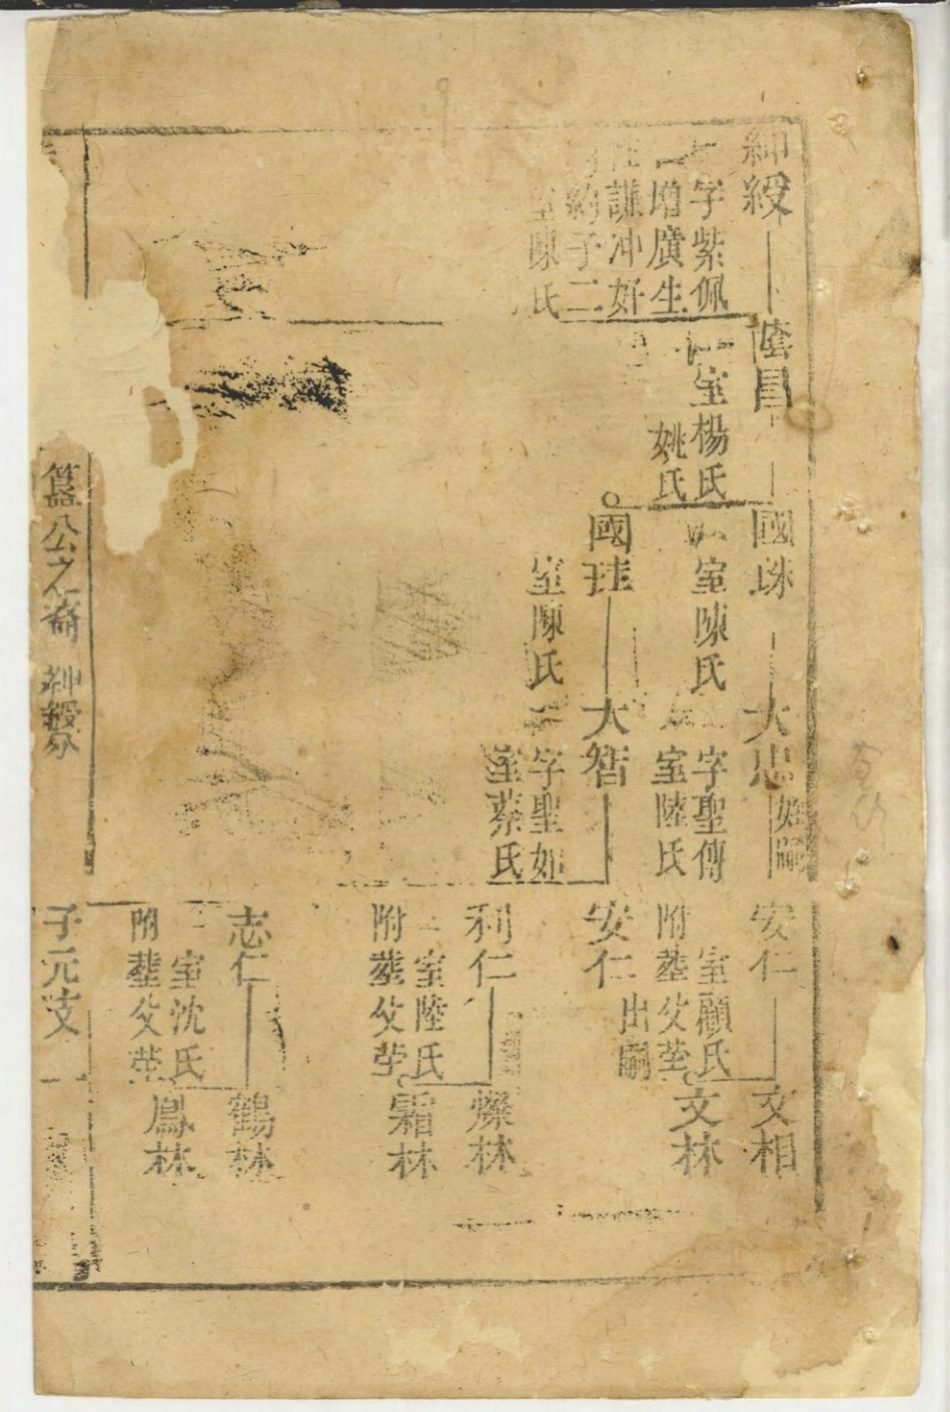 紳綬
字紫佩
增廣生
謙冲好
約子二
室陳氏
蔭昌
室楊氏
姚氏
國珠
室陳氏
國珪
室陳氏
大忠
字聖傳
室陸氏
大智
字聖如
室蔡氏
安仁
室顧氏
附塟父塋
安仁
出嗣
利仁
室陸氏
附塟父塋
志仁
室沈氏
附塟父塋
文相
文林
燦林
霜林
鶴林
鳳林
簋公之裔 紳綬
子元支 一